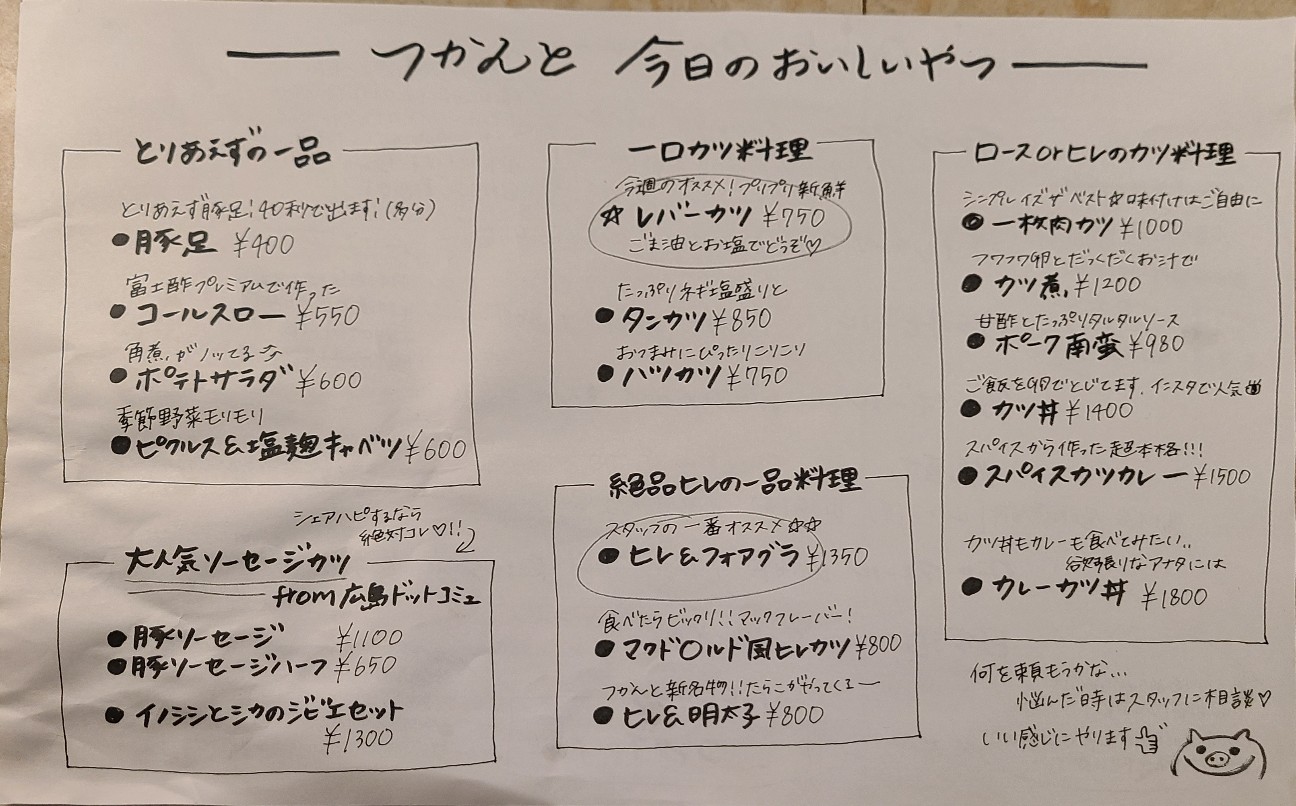 つかんと 今日のおいしいやつ
とりあえずの一品
とりあえず豚足!40秒で出ます!(多分)
●豚足 ¥400
富士酢プレミアムで作った
●コールスロー ¥550
角煮がノッてる
●ポテトサラダ ¥600
季節野菜モリモリ
●ピクルス&塩麹キャベツ ¥600
シェアハピするなら
絶対コレ♡!!
大人気ソーセージカツ
from広島ドットコミュ
●豚ソーセージ ¥1100
●豚ソーセージハーフ ¥650
●イノシシとシカのジビエセット
¥1300
一口カツ料理
今週のオススメ!プリプリ新鮮
☆レバーカツ ¥750
ごま油とお塩でどうぞ♡
たっぷりネギ塩盛りと
●タンカツ ¥850
おつまみにぴったりコリコリ
●ハツカツ ¥750
絶品ヒレの一品料理
スタッフの一番オススメ☆☆
●ヒレ&フォアグラ ¥1350
食べたらビックリ!!マックフレーバー!
●マクド〇ルド風ヒレカツ ¥800
つかんと新名物!!たらこがやってくるー
●ヒレ&明太子 ¥800
ロースorヒレのカツ料理
シンプルイズザベスト☆味付けはご自由に
●一枚肉カツ ¥1000
フワフワ卵とだっくだくお汁で
●カツ煮 ¥1200
甘酢とたっぷりタルタルソース
●ポーク南蛮 ¥980
ご飯を卵でとじてます、インスタで人気
●カツ丼 ¥1400
スパイスから作った超本格!!!
●スパイスカツカレー ¥1500
カツ丼もカレーも食べてみたい..
欲張りなアナタには
●カレーカツ丼 ¥1800
何を頼もうかな...
悩んだ時はスタッフに相談♡
いい感じにやります